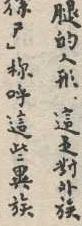 腿的人形 這是對外族
尸”称呼這些異族